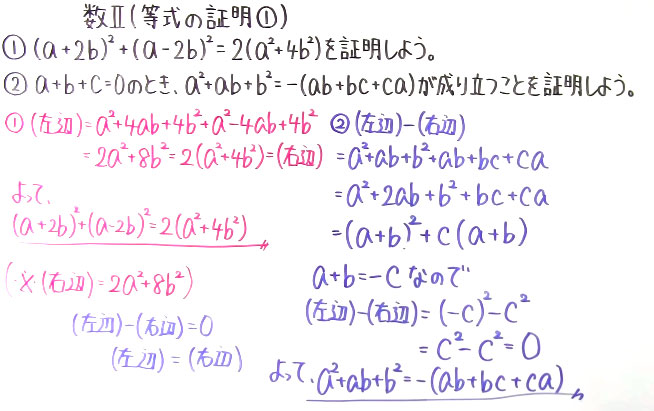 数Ⅱ(等式の証明①)
① (a+2b)²+(a-2b)²=2(a²+4b²)を証明しよう。
② a+b+c=0のとき、a²+ab+b²=-(ab+bc+ca)が成り立つことを証明しよう。
① (左辺)=a²+4ab+4b²+a²-4ab+4b²
=2a²+8b²=2(a²+4b²)=(右辺)
よって、
(a+2b)²+(a-2b)²=2(a²+4b²)〃
(※(右辺)=2a²+8b²)
(左辺)-(右辺)=0
(左辺)=(右辺)
② (左辺)-(右辺)
=a²+ab+b²+ab+bc+ca
=a²+2ab+b²+bc+ca
=(a+b)²+c(a+b)
a+b=-cなので
(左辺)-(右辺)=(-c)²-c²
=c²-c²=0
よって、a²+ab+b²=-(ab+bc+ca)〃